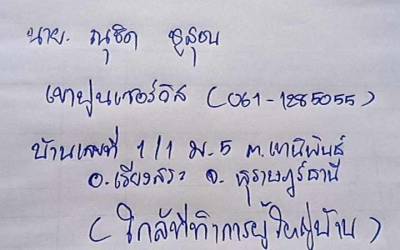 นาย. ณุชิต
เขาปูนเซอร์วิส (061-1285055)
บ้านเลขที่ 1/1 ม.5 ต.เขานิพันธ์
อ.เวียงสระ จ.สุราษฎร์ธานี
(ใกล้ที่ทำการผู้ใหญ่บ้าน)